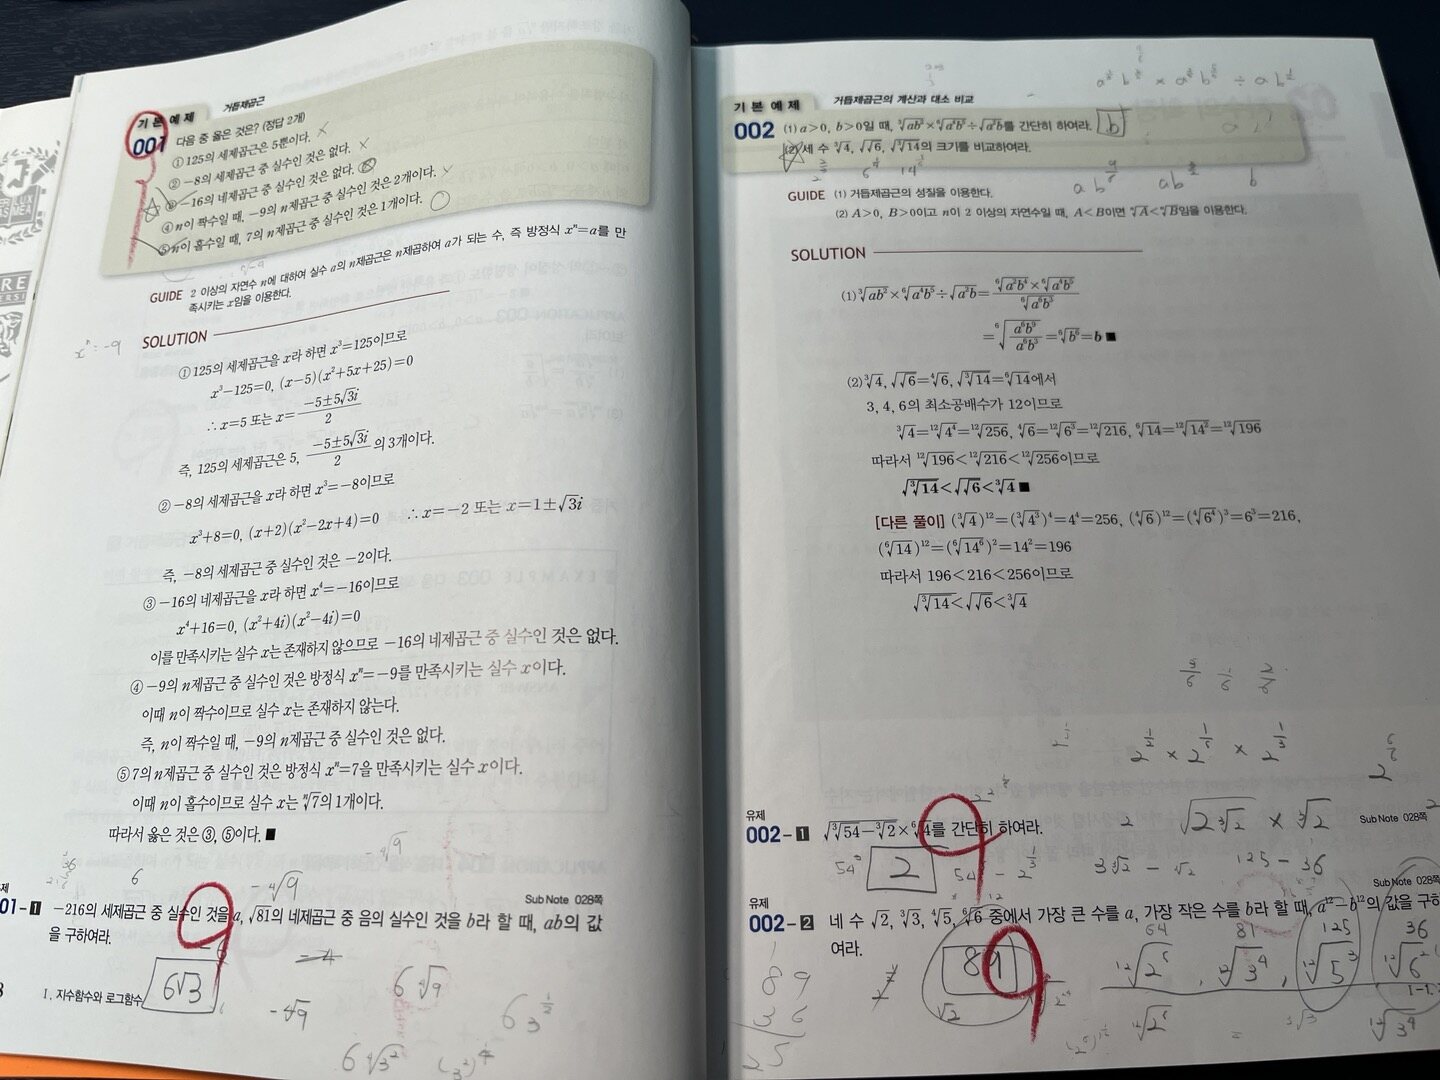 기 본 예 제 거듭제곱근
001 다음 중 옳은 것은? (정답 2개)
① 125의 세제곱근은 5뿐이다. ×
② −8의 세제곱근 중 실수인 것은 없다. ×
③ −16의 네제곱근 중 실수인 것은 없다.
④ n이 짝수일 때, −9의 n제곱근 중 실수인 것은 2개이다. ×
⑤ n이 홀수일 때, 7의 n제곱근 중 실수인 것은 1개이다. ○
GUIDE 2 이상의 자연수 n에 대하여 실수 a의 n제곱근은 n제곱하여 a가 되는 수, 즉 방정식 xⁿ=a를 만
족시키는 x임을 이용한다.
xⁿ = -9
SOLUTION
① 125의 세제곱근을 x라 하면 x³=125이므로
x³−125=0, (x−5)(x²+5x+25)=0
∴ x=5 또는 x=(−5±5√3i)/2
즉, 125의 세제곱근은 5, (−5±5√3i)/2의 3개이다.
② −8의 세제곱근을 x라 하면 x³=−8이므로
x³+8=0, (x+2)(x²−2x+4)=0 ∴ x=−2 또는 x=1±√3i
즉, −8의 세제곱근 중 실수인 것은 −2이다.
③ −16의 네제곱근을 x라 하면 x⁴=−16이므로
x⁴+16=0, (x²+4i)(x²−4i)=0
이를 만족시키는 실수 x는 존재하지 않으므로 −16의 네제곱근 중 실수인 것은 없다.
④ −9의 n제곱근 중 실수인 것은 방정식 xⁿ=−9를 만족시키는 실수 x이다.
이때 n이 짝수이므로 실수 x는 존재하지 않는다.
즉, n이 짝수일 때, −9의 n제곱근 중 실수인 것은 없다.
⑤ 7의 n제곱근 중 실수인 것은 방정식 xⁿ=7을 만족시키는 실수 x이다.
이때 n이 홀수이므로 실수 x는 ⁿ√7의 1개이다.
따라서 옳은 것은 ③, ⑤이다. ■
6
⁴√9
Sub Note 028쪽
01-1 −216의 세제곱근 중 실수인 것을 a, √81의 네제곱근 중 음의 실수인 것을 b라 할 때, ab의 값
을 구하여라.
6√3
Ⅰ. 지수함수와 로그함수
기 본 예 제 거듭제곱근의 계산과 대소 비교
002 (1) a>0, b>0일 때, ³√ab²×⁶√a⁴b⁵÷√a²b를 간단히 하여라. b
(2) 세 수 ³√4, √√6, √³√14의 크기를 비교하여라.
GUIDE (1) 거듭제곱근의 성질을 이용한다.
(2) A>0, B>0이고 n이 2 이상의 자연수일 때, A<B이면 ⁿ√A<ⁿ√B임을 이용한다.
SOLUTION
(1) ³√ab²×⁶√a⁴b⁵÷√a²b=(⁶√a²b⁴×⁶√a⁴b⁵)/⁶√a⁶b³
=⁶√(a⁶b⁹/a⁶b³)=⁶√b⁶=b ■
(2) ³√4, √√6=⁴√6, √³√14=⁶√14에서
3, 4, 6의 최소공배수가 12이므로
³√4=¹²√4⁴=¹²√256, ⁴√6=¹²√6³=¹²√216, ⁶√14=¹²√14²=¹²√196
따라서 ¹²√196<¹²√216<¹²√256이므로
√³√14<√√6<³√4 ■
[다른 풀이] (³√4)¹²=(³√4³)⁴=4⁴=256, (⁴√6)¹²=(⁴√6⁴)³=6³=216,
(⁶√14)¹²=(⁶√14⁶)²=14²=196
따라서 196<216<256이므로
√³√14<√√6<³√4
유제
002-1 √³√54−³√2×⁶√4를 간단히 하여라.
Sub Note 028쪽
2
유제
Sub Note 028쪽
002-2 네 수 √2, ³√3, ⁴√5, ⁶√6 중에서 가장 큰 수를 a, 가장 작은 수를 b라 할 때, a¹²−b¹²의 값을 구하
여라.
89
64 81 125 36
¹²√2⁶, ¹²√3⁴, ¹²√5³, ¹²√6²